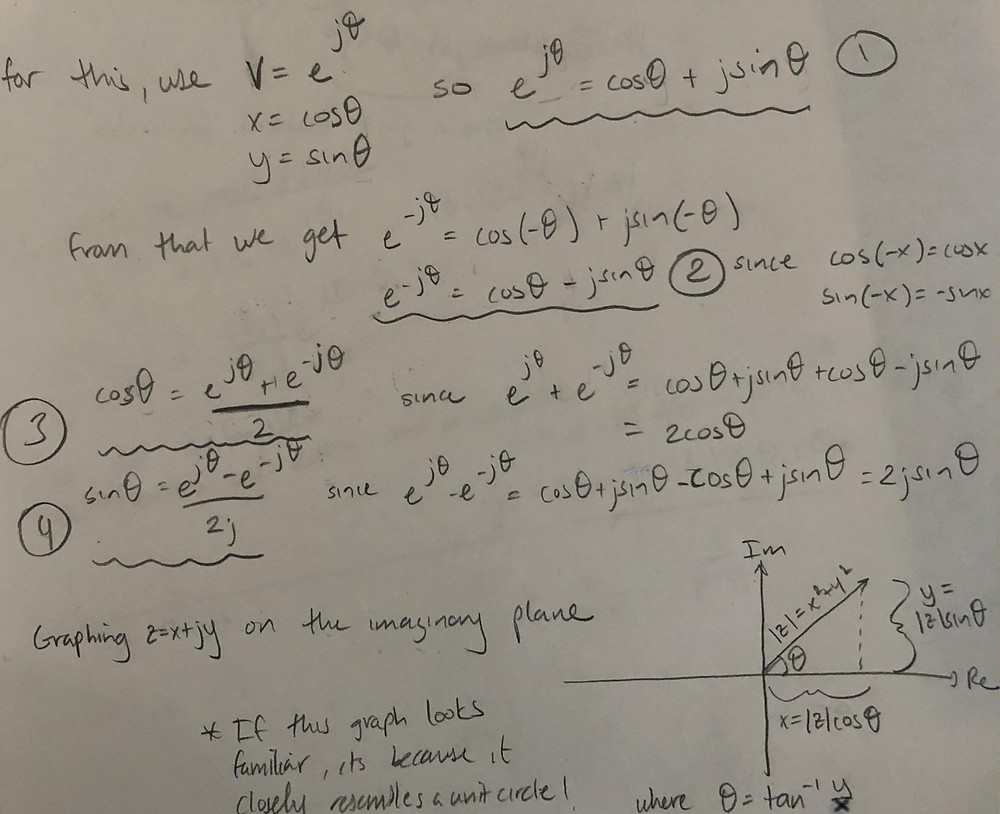 for this, use V = e^jθ so e^jθ = cosθ + jsinθ ①
x = cosθ
y = sinθ
from that we get e^-jθ = cos(-θ) + jsin(-θ)
e^-jθ = cosθ - jsinθ ② since cos(-x)=cosx
sin(-x)=-sinx
③ cosθ = e^jθ + e^-jθ / 2 since e^jθ + e^-jθ = cosθ+jsinθ+cosθ-jsinθ
= 2cosθ
④ sinθ = e^jθ - e^-jθ / 2j since e^jθ - e^-jθ = cosθ+jsinθ-cosθ+jsinθ = 2jsinθ
Im
Graphing z=x+jy on the imaginary plane
|z|=x²+y²
y=
|z|sinθ
θ
Re
x=|z|cosθ
* If this graph looks
familiar, its because it
closely resembles a unit circle!
where θ = tan⁻¹ y/x